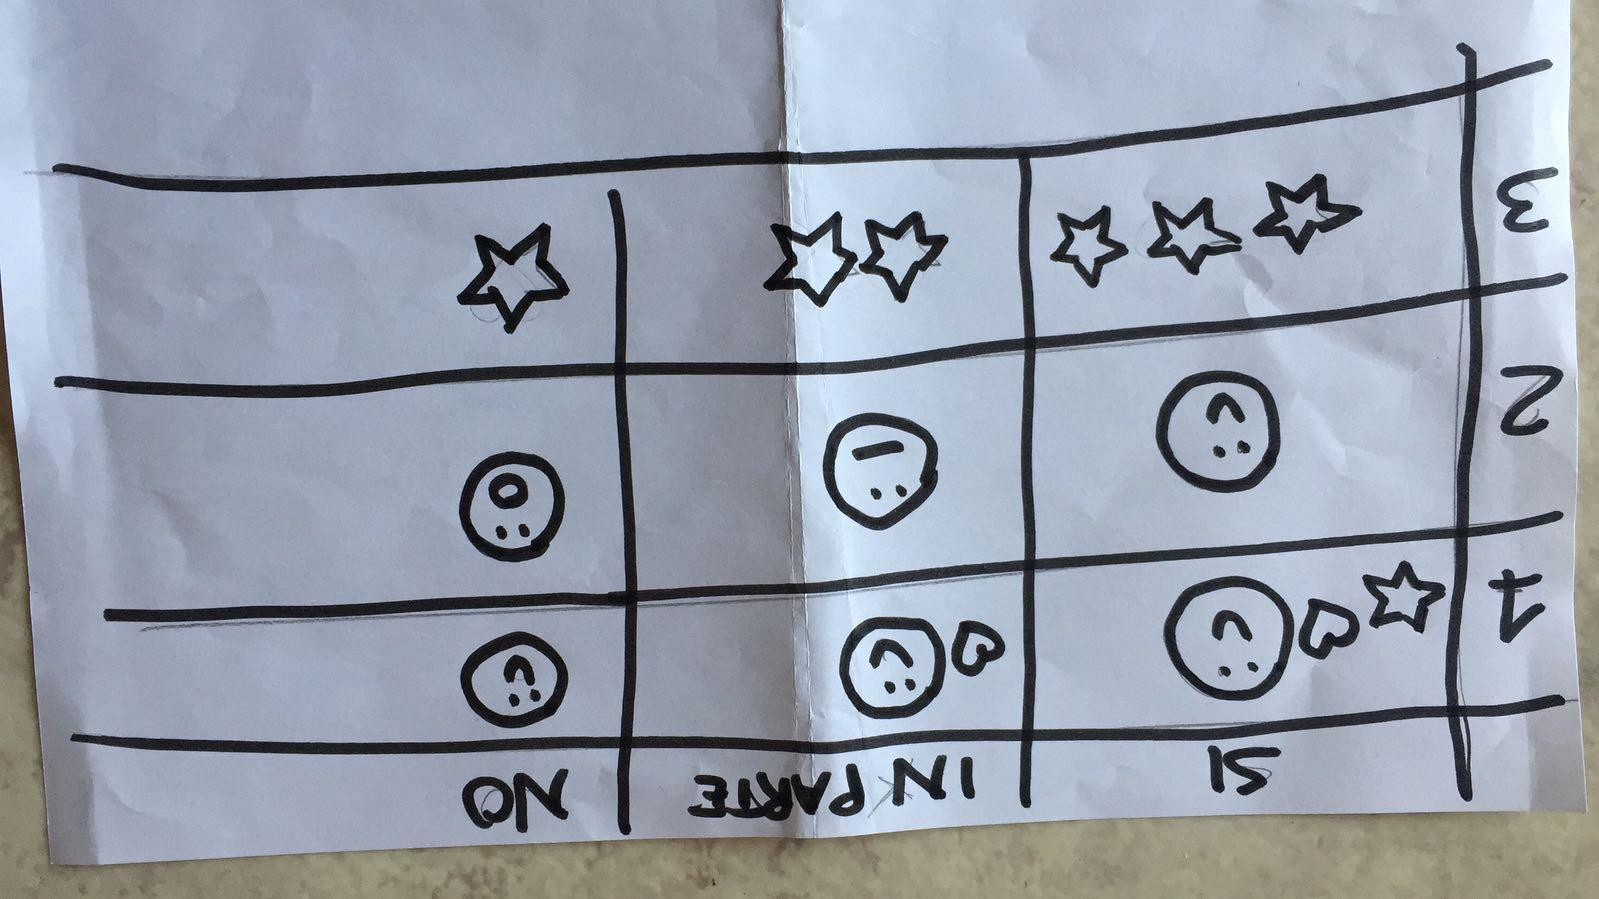 SI IN PARTE NO
1
2
3